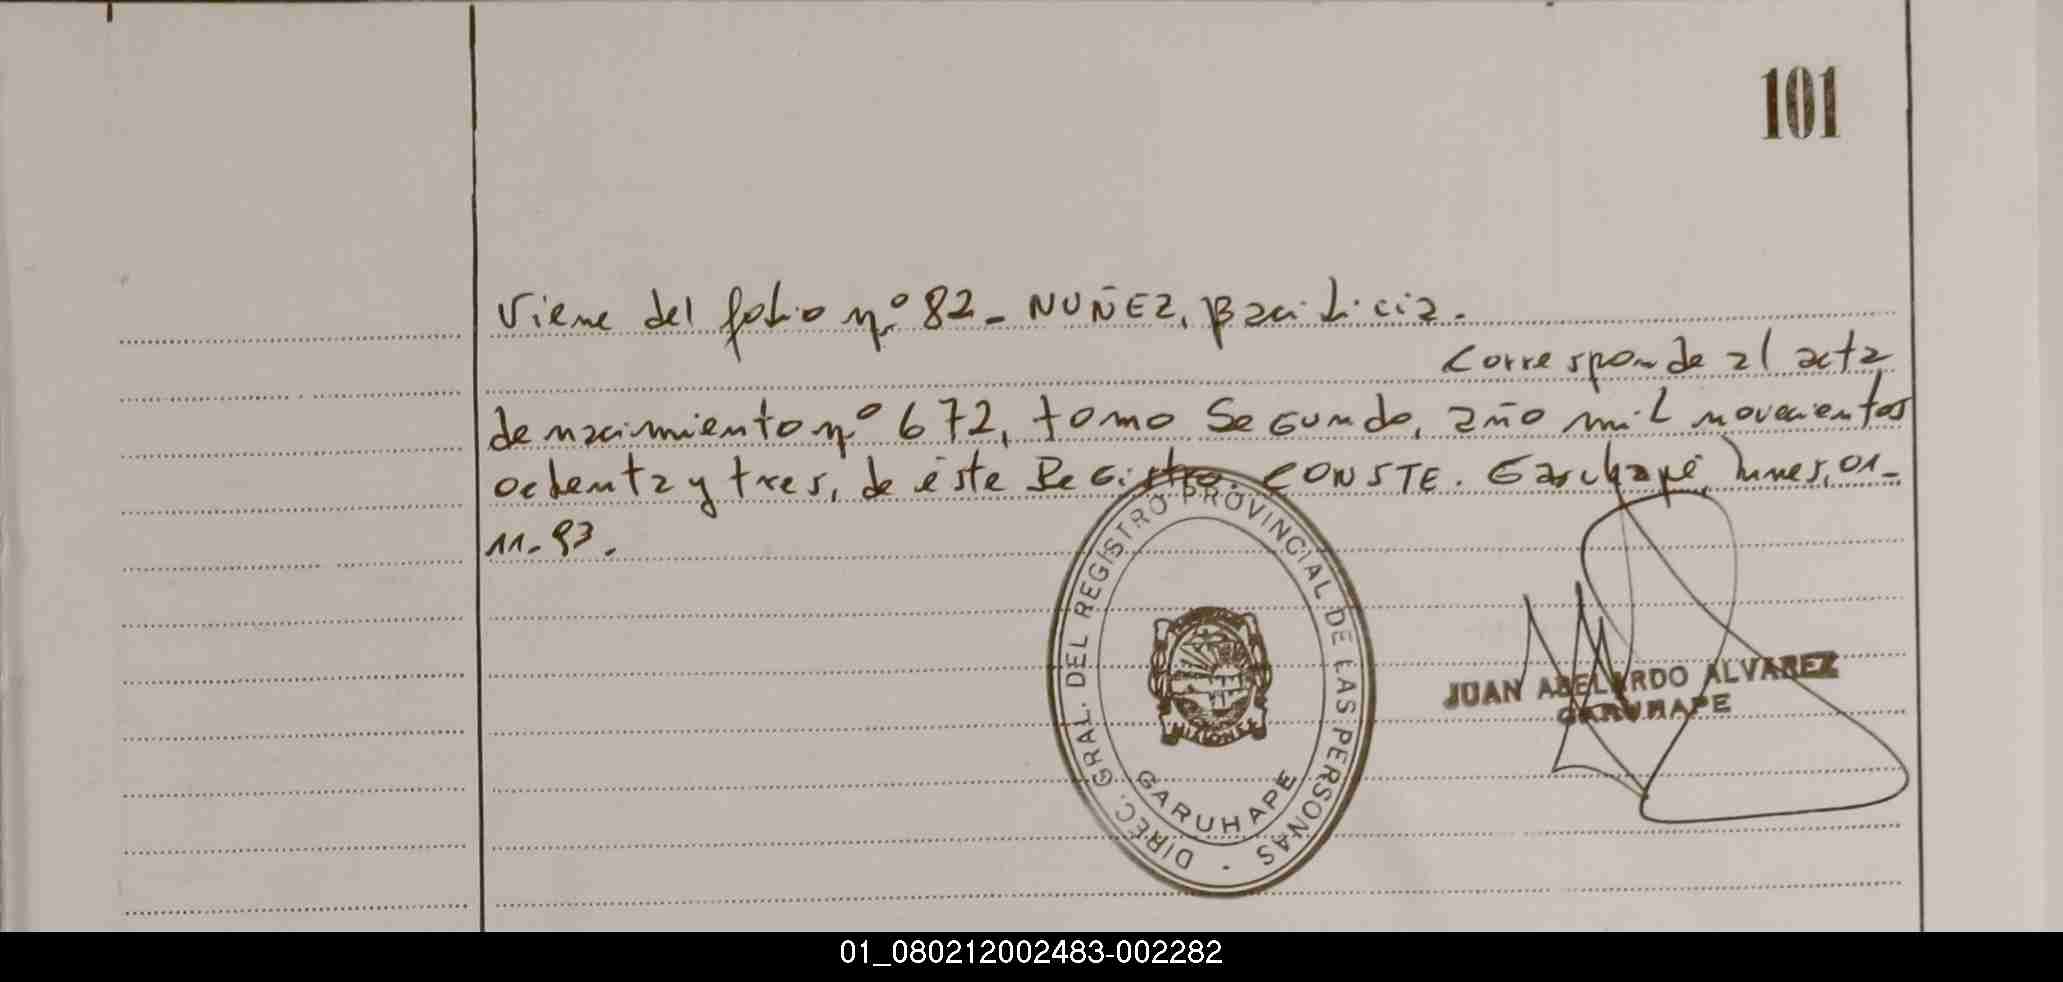 101
Viene del folio nº 82- NUÑEZ, Bacilicia.
Corresponde al acta
de nacimiento nº 672, tomo Segundo, año mil novecientos
ochenta y tres, de éste Registro. CONSTE. Garuhapé, lunes, 01-
11-93.
DIREC. GRAL. DEL REGISTRO PROVINCIAL DE LAS PERSONAS -
MISIONES
GARUHAPE
JUAN ABELARDO ALVAREZ
GARUHAPE
01_080212002483-002282